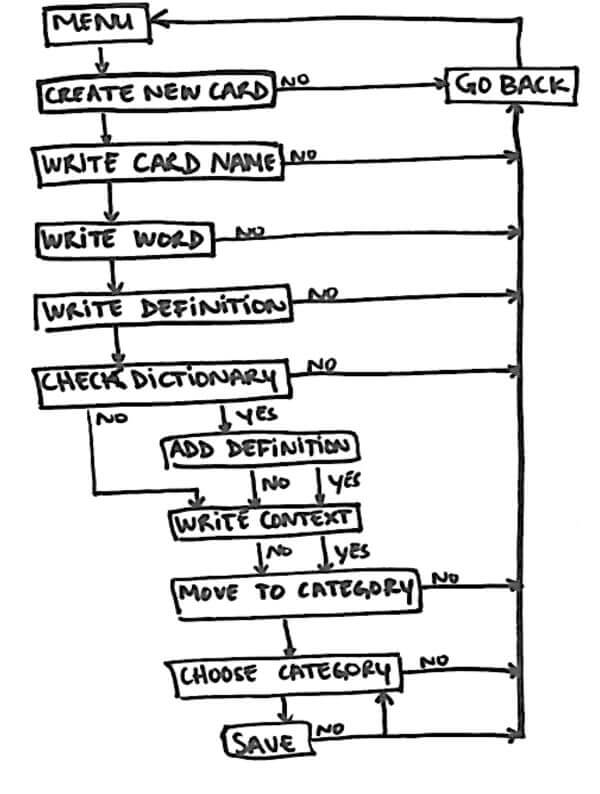 MENU
CREATE NEW CARD NO GO BACK
WRITE CARD NAME NO
WRITE WORD NO
WRITE DEFINITION NO
CHECK DICTIONARY NO
NO YES
ADD DEFINITION
NO YES
WRITE CONTEXT
NO YES
MOVE TO CATEGORY NO
CHOOSE CATEGORY NO
SAVE NO